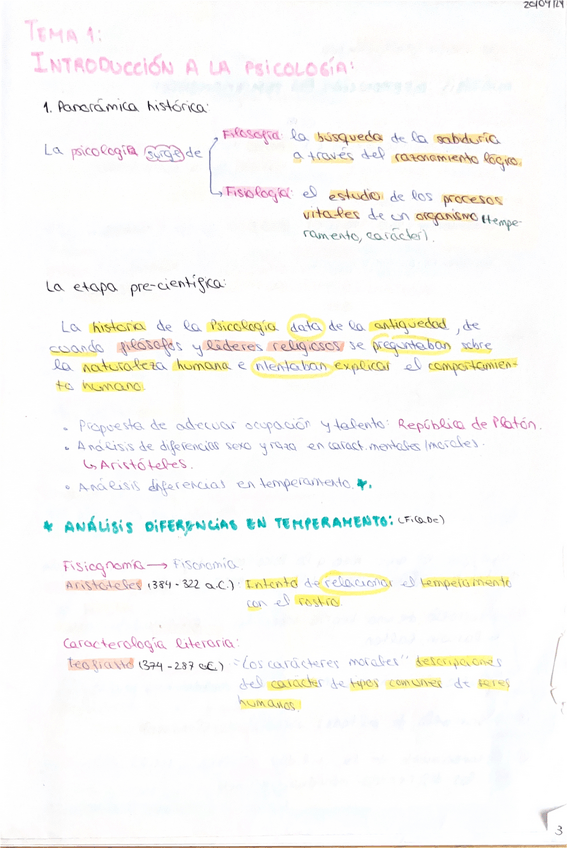 20/04/24
TEMA 1:
INTRODUCCIÓN A LA PSICOLOGÍA:
1. Panorámica histórica:
La psicología surge de
Filosofía: la búsqueda de la sabiduría
a través del razonamiento lógico.
Fisiología: el estudio de los procesos
vitales de un organismo (tempe-
ramento, carácter).
La etapa pre-científica:
La historia de la Psicología data de la antiguedad, de
cuando filósofos y líderes religiosos se preguntaban sobre
la naturaleza humana e intentaban explicar el comportamien-
to humano.
• Propuesta de adecuar ocupación y talento: República de Platón.
• Análisis de diferencias sexo y raza en caract. mentales/morales.
↳ Aristóteles.
• Análisis diferencias en temperamento *.
* ANÁLISIS DIFERENCIAS EN TEMPERAMENTO: (FiCaDe)
Fisiognomía → Fisonomía:
Aristóteles (384-322 a.C.): Intento de relacionar el temperamento
con el rostro.
Caracterología literaria:
Teofrasto (374-287 a.C.) "Los carácteres morales" descripciones
del carácter de tipos comunes de seres
humanos.
3